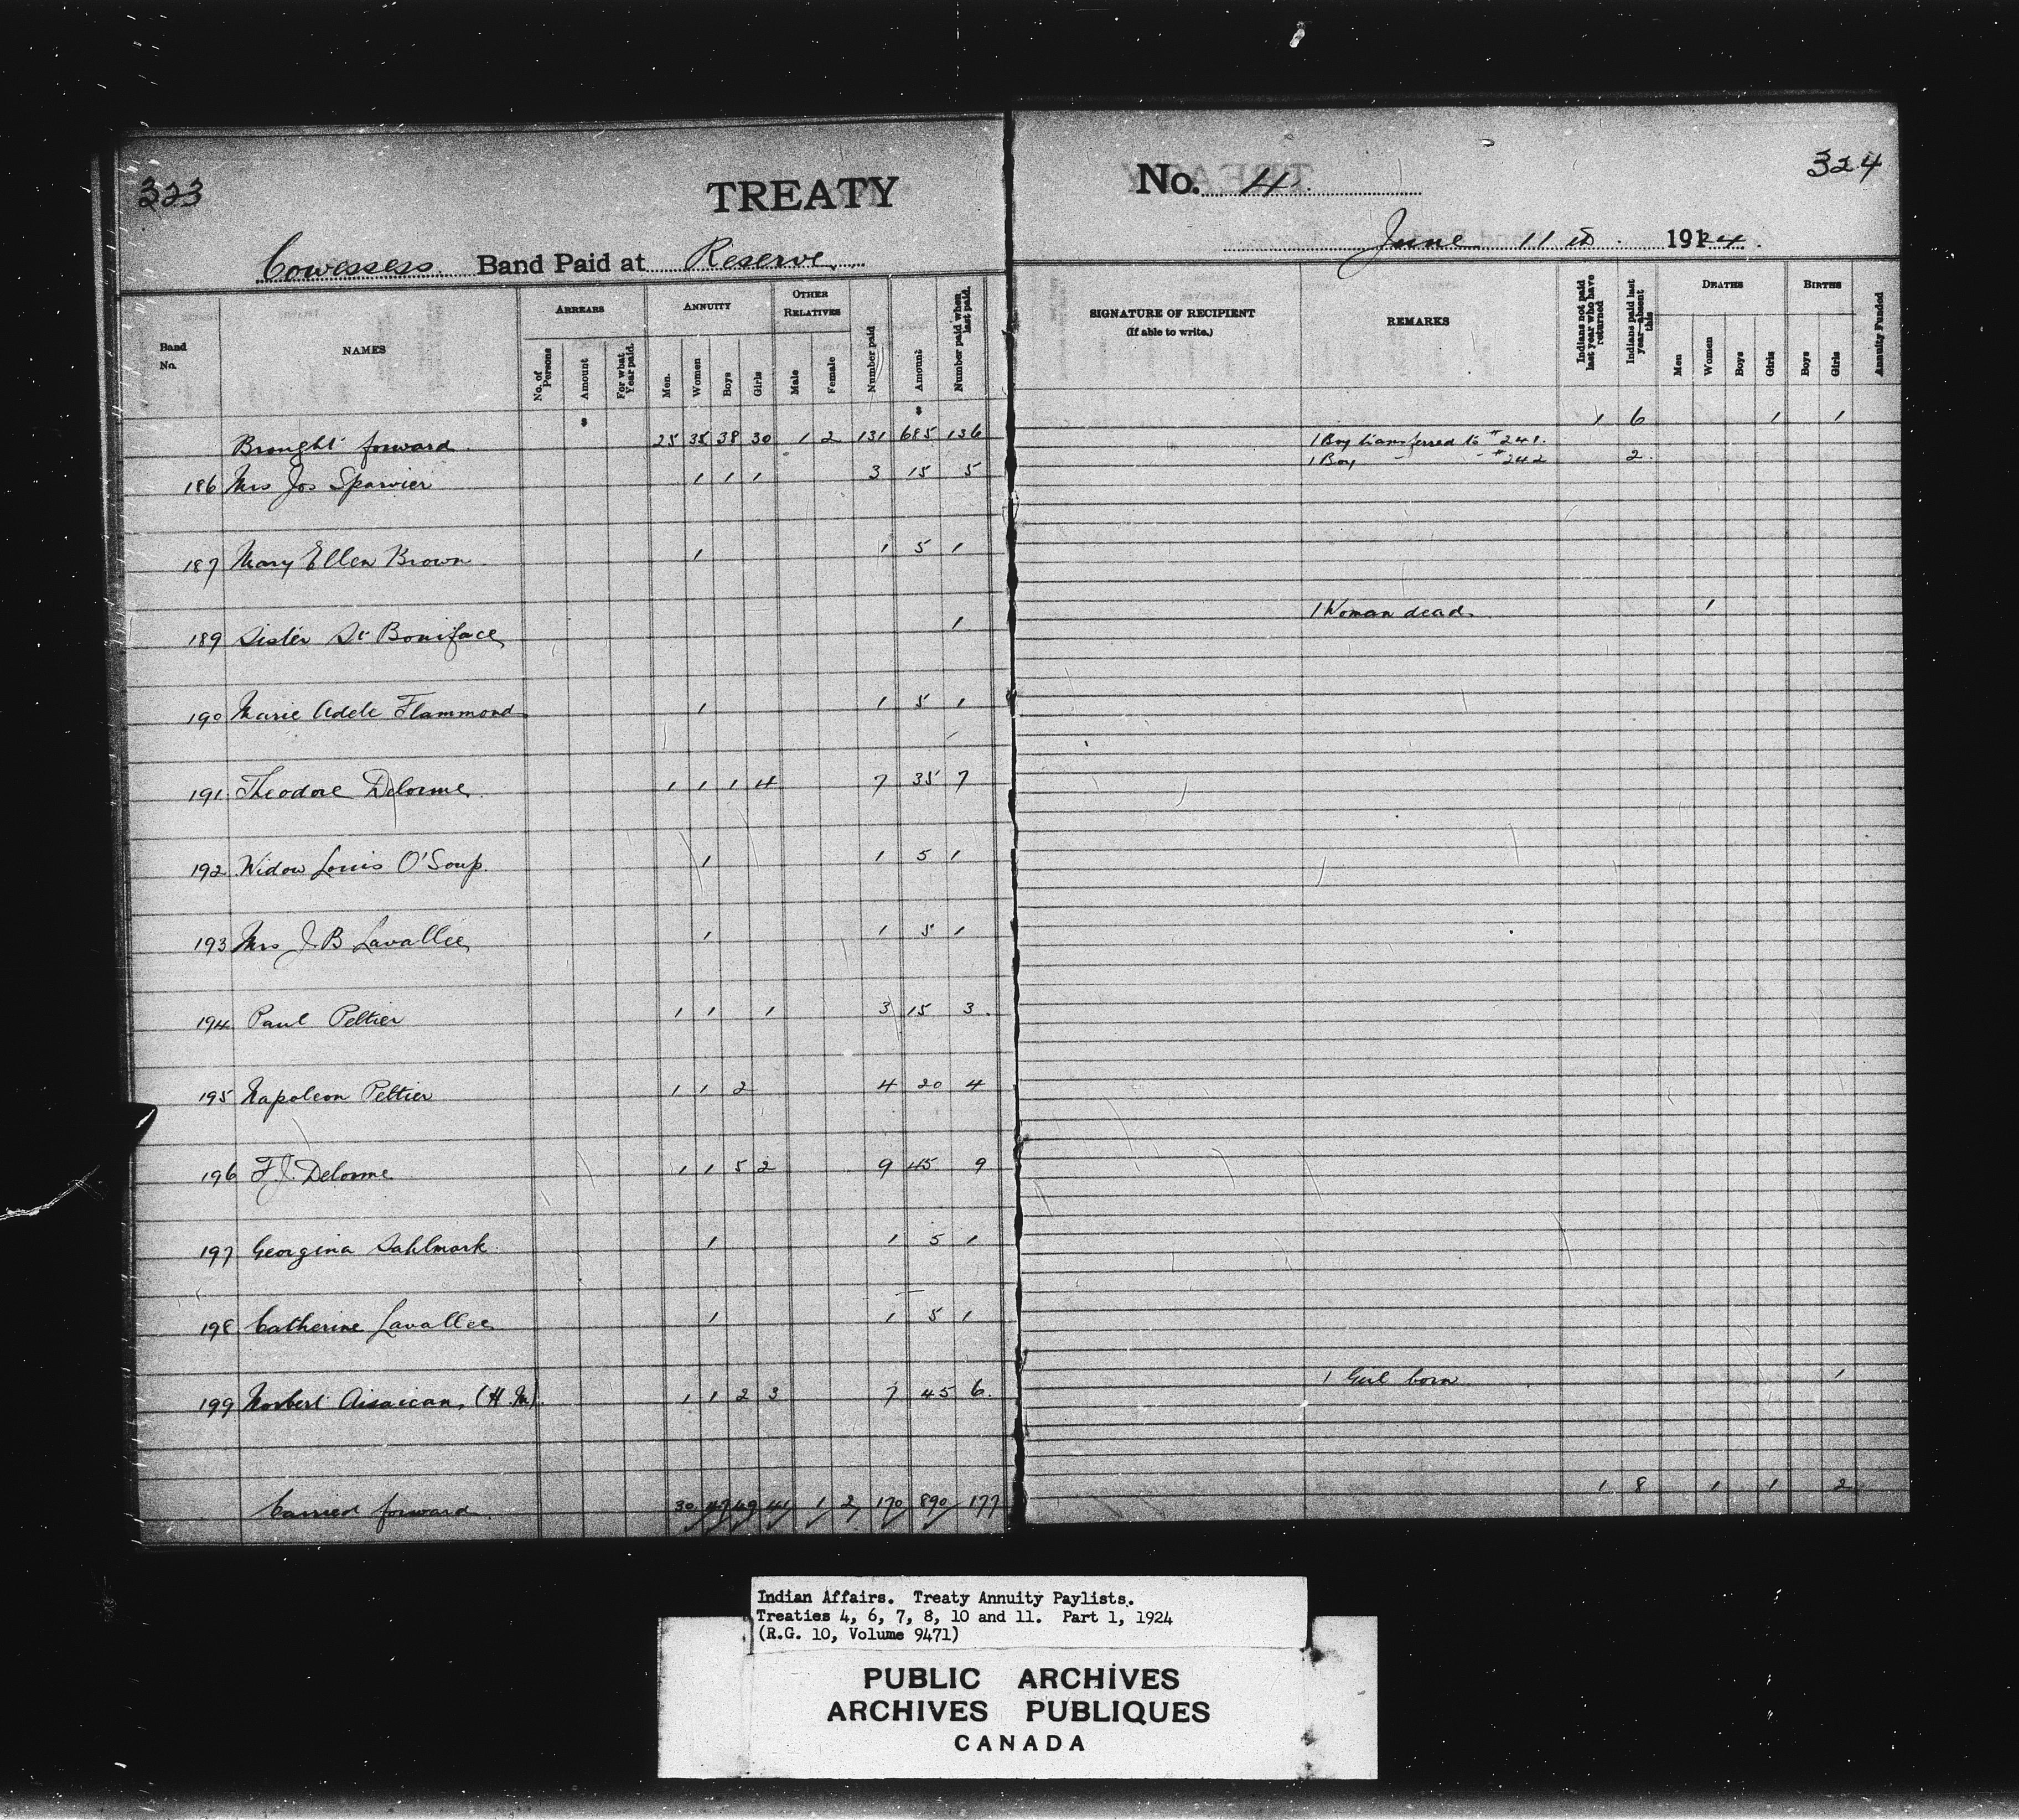 323
TREATY
No. 4.
324
Cowessess Band Paid at Reserve
June 11th. 1924.
Band No.
NAMES
ARREARS
No. of Persons
Amount
For what Year paid.
ANNUITY
Men.
Women
Boys
Girls
OTHER RELATIVES
Male
Female
Number paid
Amount
Number paid when last paid.
SIGNATURE OF RECIPIENT
(If able to write.)
REMARKS
Indians not paid last year who have returned
Indians paid last year—absent this
DEATHS
Men
Women
Boys
Girls
BIRTHS
Boys
Girls
Annuity Funded
$ $
Brought forward. 25 35 38 30 1 2 131 685 136 1 6 1 1
1 Boy transferred to #241.
1 Boy " " #242 2.
186 Mrs Jos Sparvier 1 1 1 3 15 5
187 Mary Ellen Brown. 1 1 5 1
189 Sister St Boniface 1 1 Woman dead. 1
190 Marie Adele Flammond 1 1 5 1
191 Theodore Delorme. 1 1 1 4 7 35 7
192 Widow Louis O'Soup. 1 1 5 1
193 Mrs J.B Lavallee 1 1 5 1
194 Paul Peltier 1 1 1 3 15 3.
195 Napoleon Peltier 1 1 2 4 20 4
196 F.J. Delorme 1 1 5 2 9 45 9
197 Georgina Sahlmark. 1 1 5 1
198 Catherine Lavallee 1 1 5 1
199 Norbert Aisaican, (H.M). 1 1 2 3 7 45 6. 1 Girl born 1
Carried forward. 30 47 49 41 1 2 170 890 177 1 8 1 1 2
Indian Affairs. Treaty Annuity Paylists.
Treaties 4, 6, 7, 8, 10 and 11. Part 1, 1924
(R.G. 10, Volume 9471)
PUBLIC ARCHIVES
ARCHIVES PUBLIQUES
CANADA